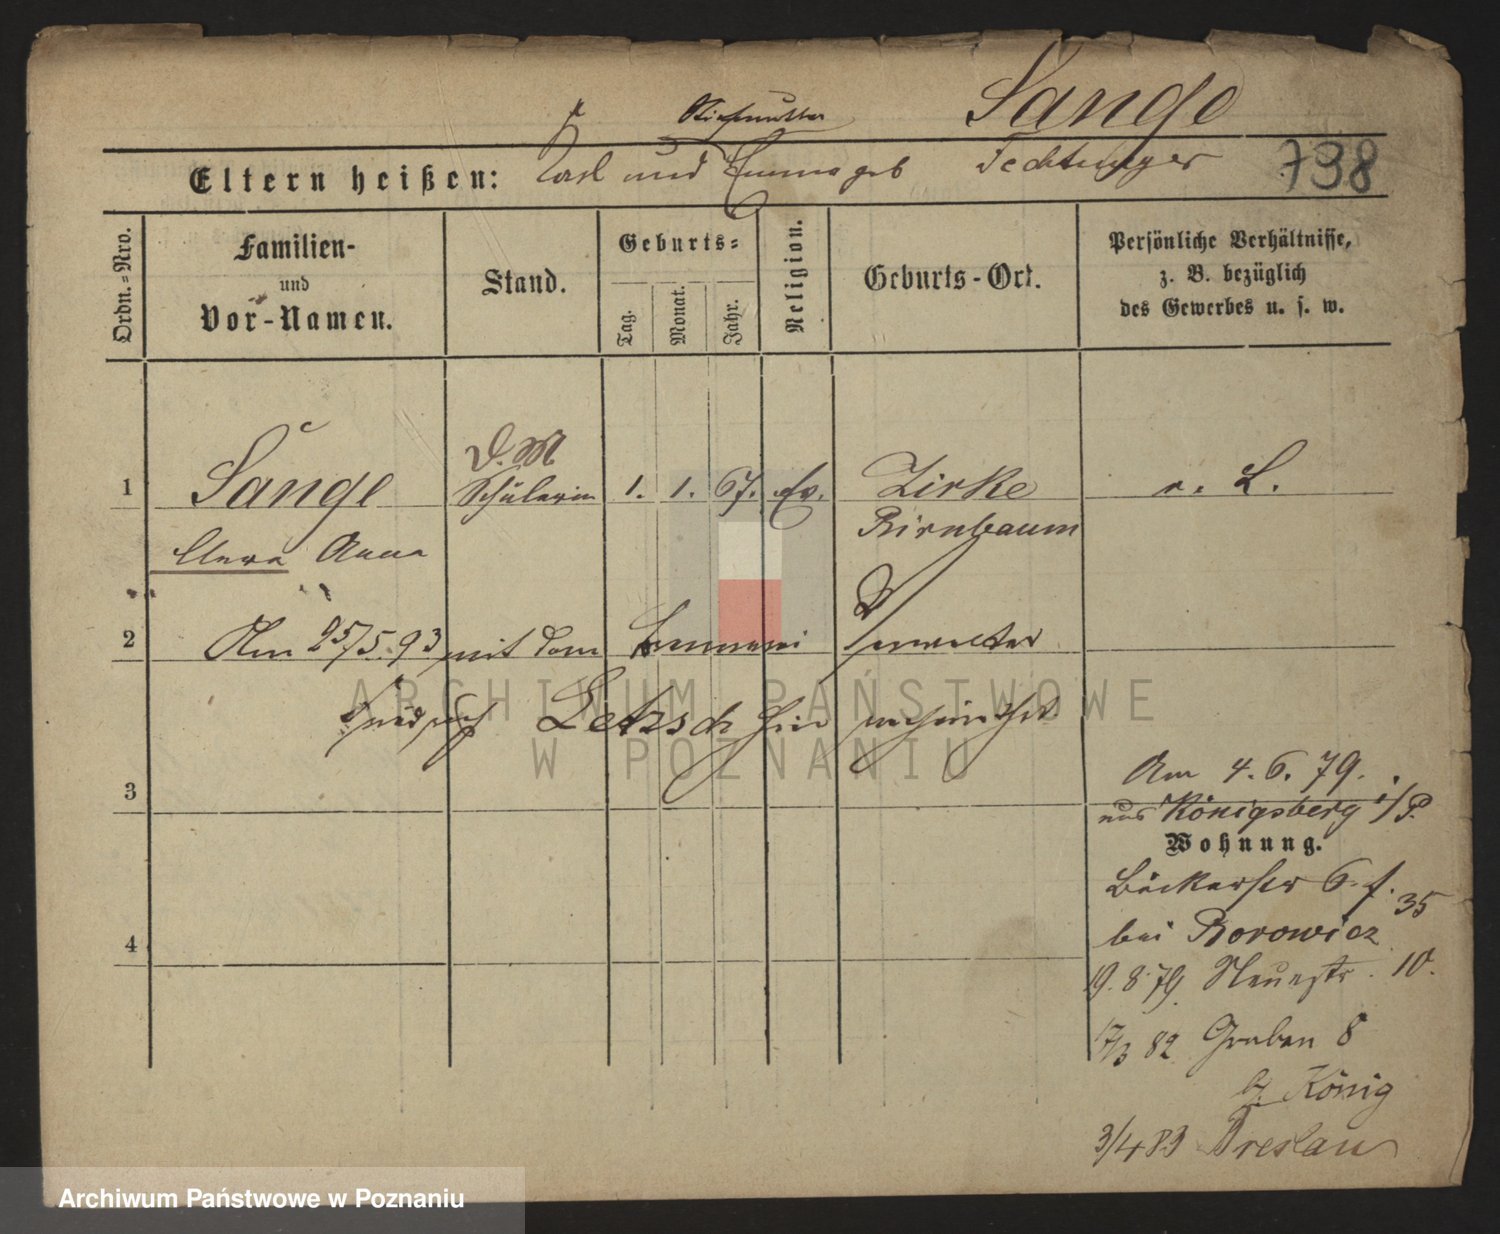 Sange
Stiefmutter
738
Eltern heißen: Carl und Emma geb Fechtunger
Ordn.-Nro.
Familien-
und
Vor-Namen.
Stand.
Geburts-
Tag.
Monat.
Jahr.
Religion.
Geburts-Ort.
Persönliche Verhältnisse,
z. B. bezüglich
des Gewerbes u. s. w.
D. M
1 Sange Schülerin 1. 1. 67. Ev. Zirke r. L.
Birnbaum
Clara Anna
2 Am 25/5. 93 mit dem Verwalter
Letzsch hier
3
Am 4. 6. 79.
aus Königsberg i/P.
Wohnung.
Bäckerstr 6. f.
35
bei Borowicz
4
19. 8. 79. Neuestr. 10.
17/3 82 Graben 8
b. König
3/4 83 Breslau
ARCHIWUM PAŃSTWOWE
W POZNANIU
Archiwum Państwowe w Poznaniu